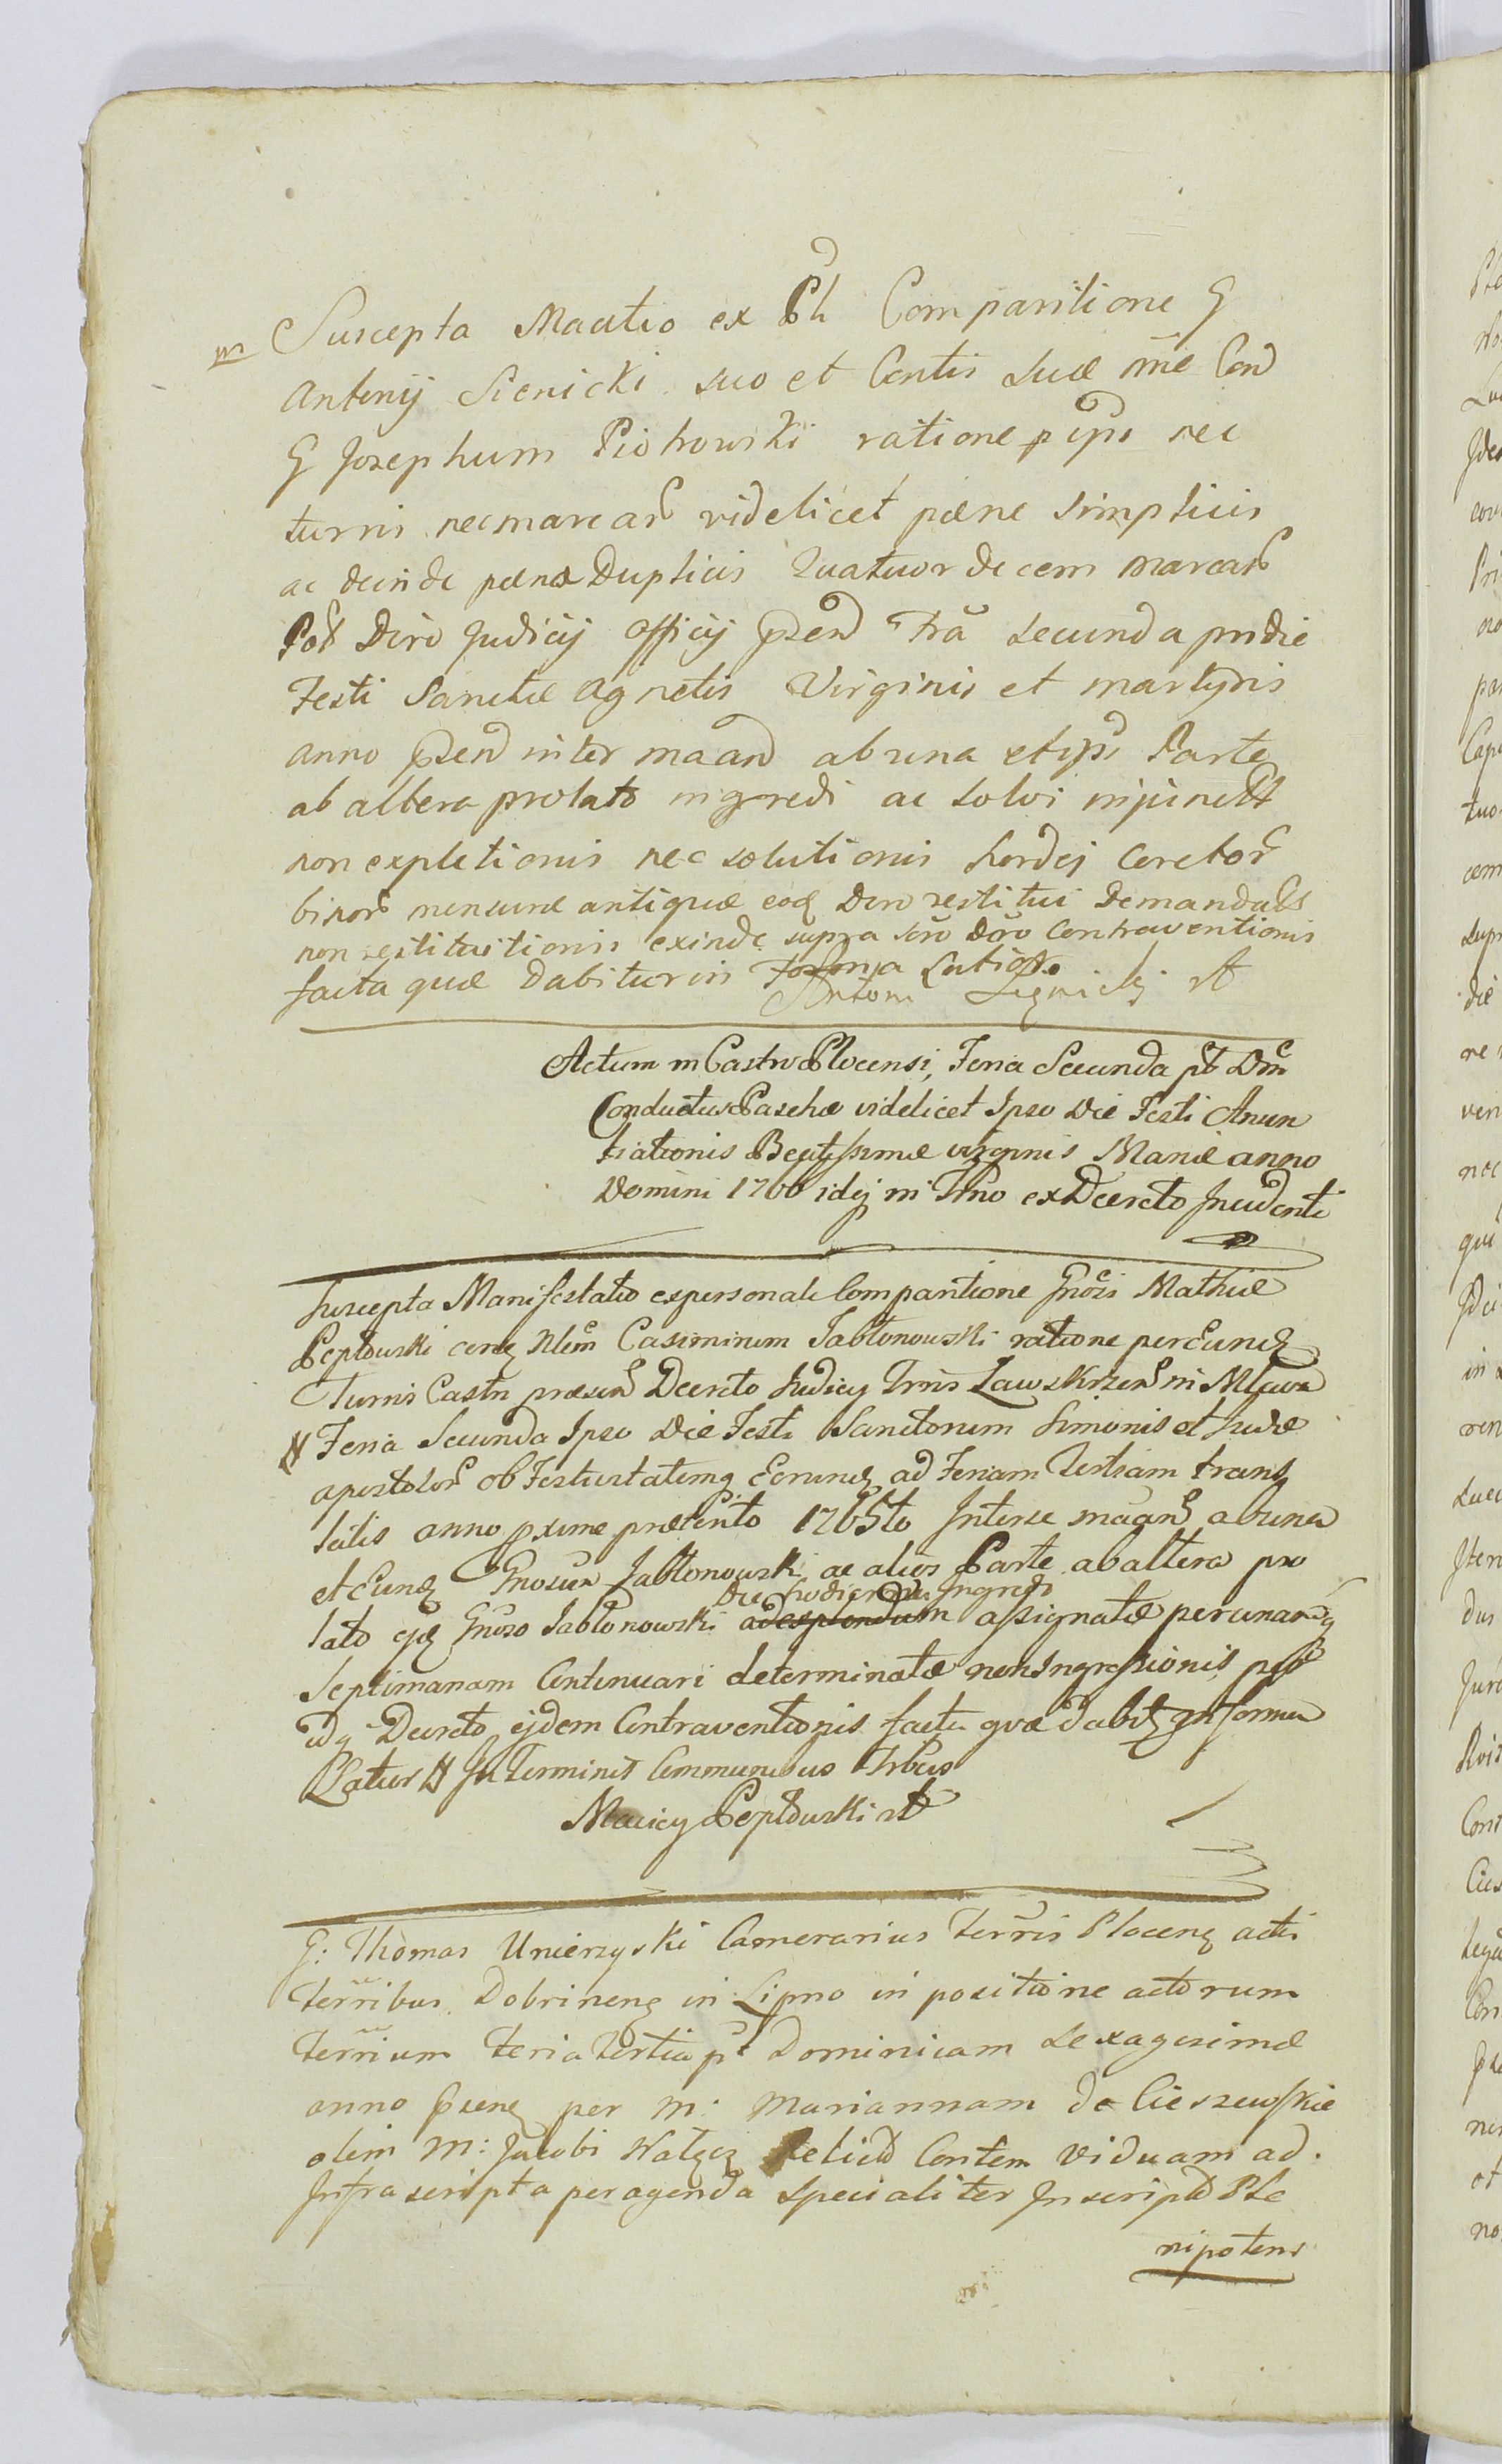 Suscepta Maātio ex Pli Comparitione G
m
Antonij Sienicki suo et Contis suæ nñe Con
G Josephum Piotrowski ratione p ips nec
turris nec marcar videlicet pœne simplicis
ac deinde pœnæ Duplicis Quatuordecem marcar
Post Dcro Judicij Officij Præn Fra Secunda pridie
Festi Sanctæ Agnetis Virginis et martyris
anno Præn inter maan ab una et ips Parte
ab altera prolato ingredi ac solvi injunctt
non expletionis nec solutionis hordej Coretor
binor mensuræ antiquæ eod Dcro restitui Demandats
non restituitionis exinde supra scro Dcro Contraventionis
facta quæ Dabitur in Forma Latior
Antoni Sienicki
Actum in Castro Plocensi, Feria Secunda pt Dm
Conductus Paschæ videlicet Ipso Die Festi Anun
tiationis Beatissimæ virginis Mariæ anno
Domini 1766 idq in Trno ex Decreto Incidenti
Suscepta Manifestatio ex personali Comparitione Gnosi Mathiæ
Peptowski cerq Casimirum Jabłonowski ratione per Eund
Turris Castri præsen Decreto Judicij Trris Zawskrzen in Mława
# Feria Secunda Ipso Die Festi Sanctorum Simonis et Judæ
apostolor ob Festivitatemq Eorund ad Feriam Tertiam trans
latis anno pxime præterito 1765to Inter se maan ab una
et Eund Gnosum Jabłonowski ac alios Parte ab altera pro
Die hodierna Ingredi
lato ejq Gnoso Jabłonowski ad explendum assignatæ per unamq
Septimanam Continuari determinatæ non Ingressionis pst
idq Decreto ejdem Contraventionis facta quæ dabitq in forma
Latior # In Terminis Communibus Trbus
Maciey Peptowski
G: Thomas Unierzyski Camerarius Terrris Plocenq actis
Terribus Dobrinenq in Lipno in positione actorum
Terrium feria tertia pt Dominicam Sexagesimæ
anno Prenq per M: Mariannam de Cieszewskie
olim M: Jacobi Nałęcz Relict Contem Viduam ad
Infra scripta peragenda specialiter Inscript Ple
nipotens